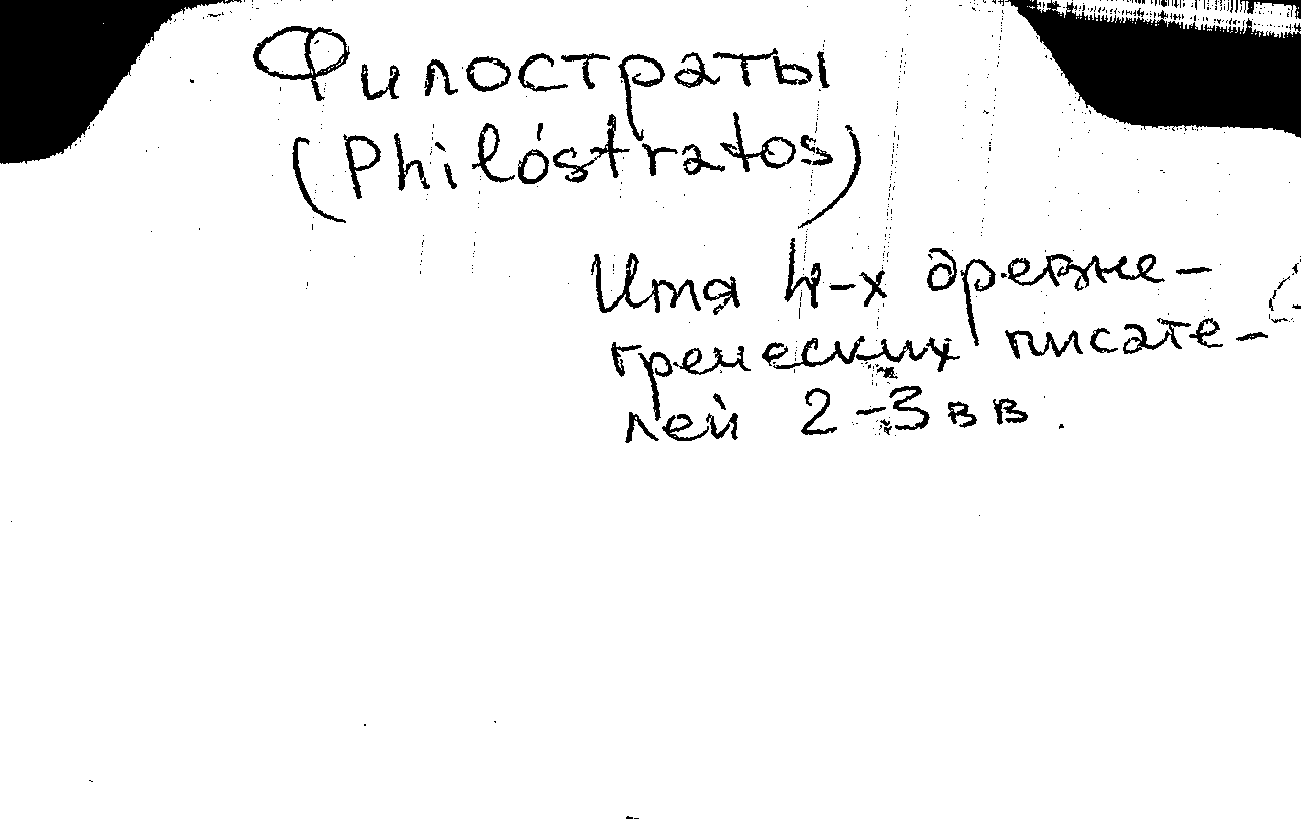 Филостраты
(Philóstratos)
Имя 4-х древне-
греческих писате-
лей 2-3 вв.